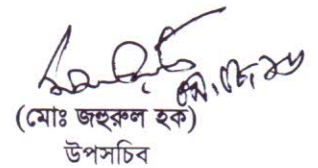 (মোঃ জহুরুল হক)
উপসচিব